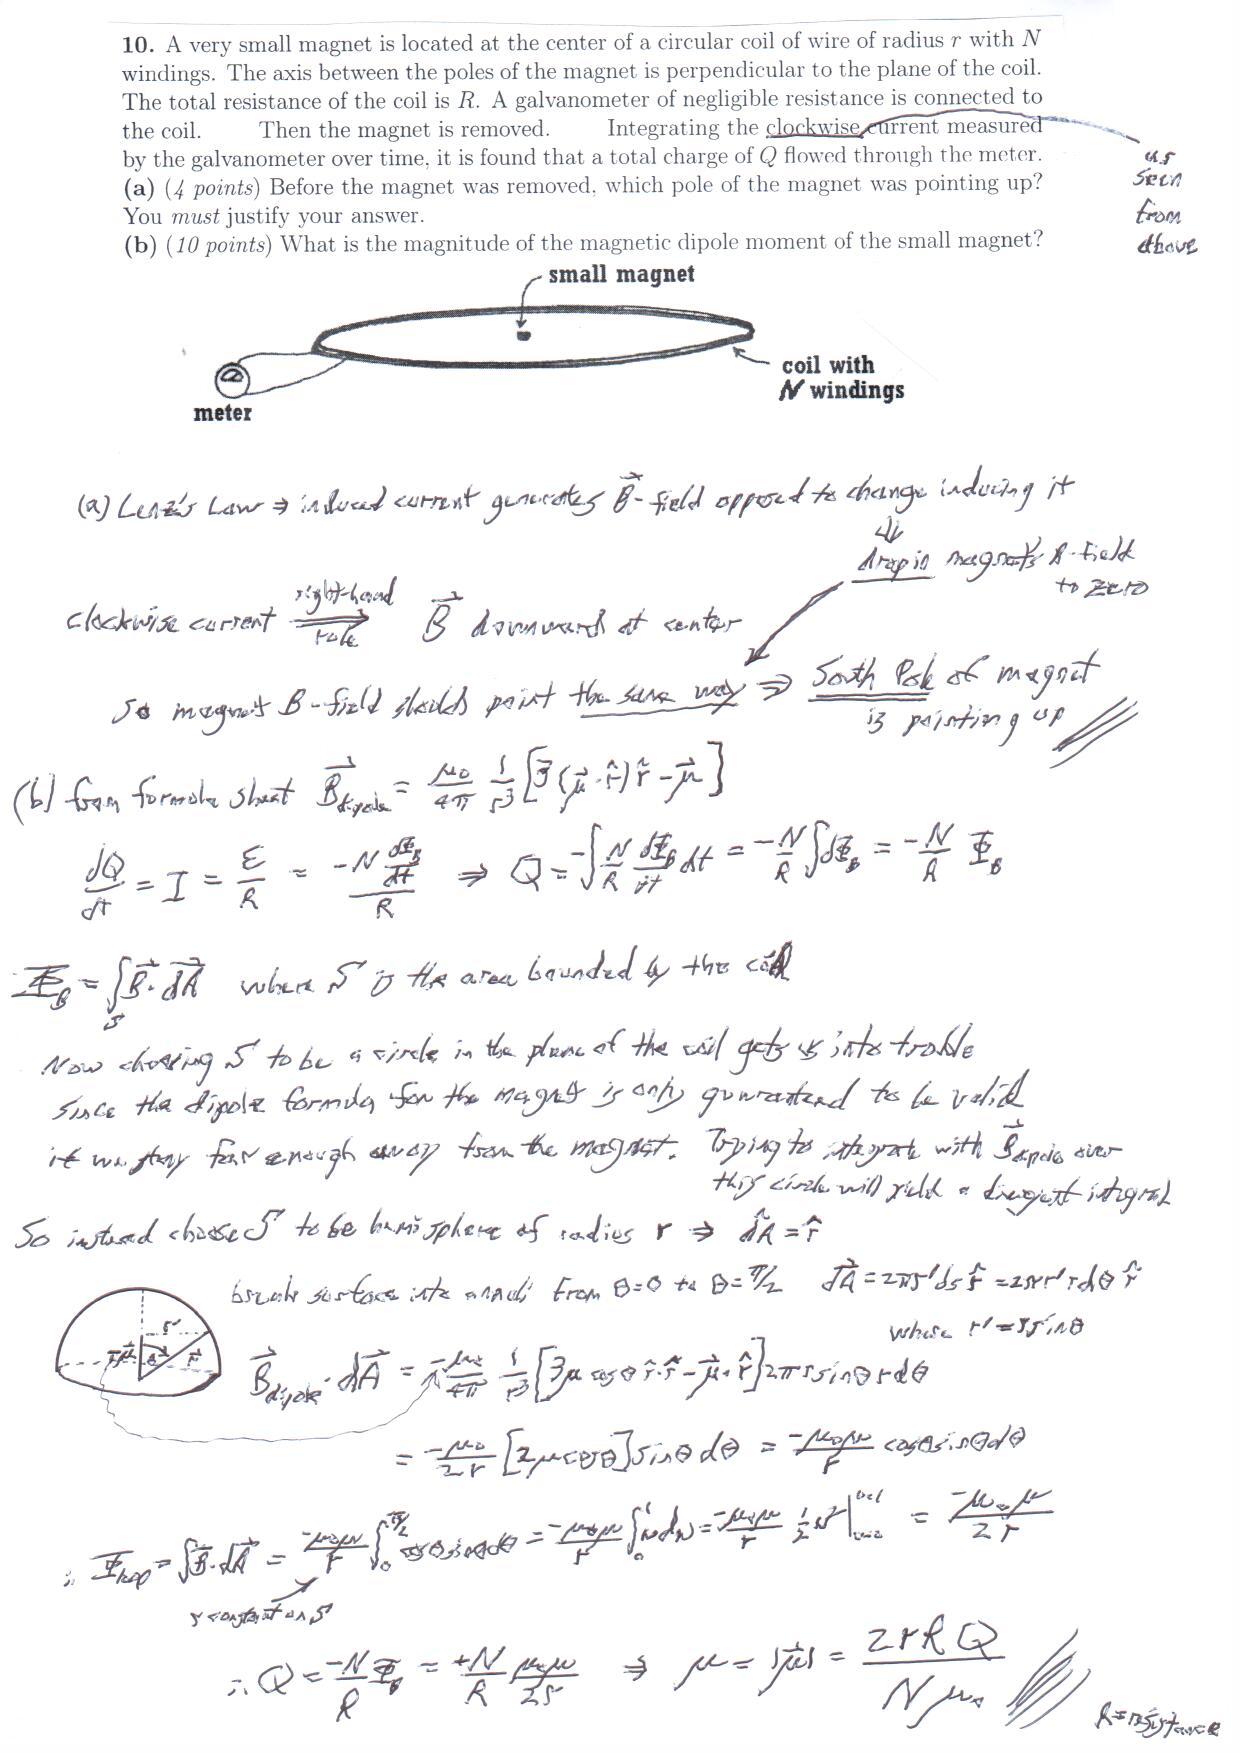 10. A very small magnet is located at the center of a circular coil of wire of radius r with N
windings. The axis between the poles of the magnet is perpendicular to the plane of the coil.
The total resistance of the coil is R. A galvanometer of negligible resistance is connected to
the coil. Then the magnet is removed. Integrating the clockwise current measured
by the galvanometer over time, it is found that a total charge of Q flowed through the meter.
as
seen
from
above
(a) (4 points) Before the magnet was removed, which pole of the magnet was pointing up?
You must justify your answer.
(b) (10 points) What is the magnitude of the magnetic dipole moment of the small magnet?
small magnet
coil with
N windings
meter
(a) Lenz's Law ⇒ induced current generates B⃗-field opposed to change inducing it
⇓
drop in magnet's B-field
to zero
clockwise current right-hand rule ⇒ B⃗ downward at center
so magnet B-field should point the same way ⇒ South Pole of magnet
is pointing up
(b) from formula sheet B⃗dipole = μ₀/4π 1/r³ [3(μ⃗·r̂)r̂ - μ⃗]
dQ/dt = I = ε/R = -N dΦB/dt / R ⇒ Q = -∫ N/R dΦB/dt dt = -N/R ∫dΦB = -N/R ΦB
ΦB = ∫S B⃗·dA⃗ where S is the area bounded by the coil
Now choosing S to be a circle in the plane of the coil gets us into trouble
since the dipole formula for the magnet is only guaranteed to be valid
if we stay far enough away from the magnet. Trying to integrate with B⃗dipole over
this circle will yield a divergent integral
So instead choose S to be hemisphere of radius r ⇒ dÂ = r̂
break surface into annuli from θ=0 to θ=π/2 dA⃗ = 2πr'ds r̂ = 2πr' r dθ r̂
where r' = r sinθ
r'
θ
r⃗
B⃗dipole·dA⃗ = -μ₀/4π 1/r³ [3μ cosθ r̂·r̂ - μ⃗·r̂] 2π r sinθ r dθ
= -μ₀/2r [2μcosθ] sinθ dθ = -μ₀μ/r cosθ sinθ dθ
∴ Φloop = ∫B⃗·dA⃗ = -μ₀μ/r ∫₀^π/2 cosθ sinθ dθ = -μ₀μ/r ∫₀¹ u du = -μ₀μ/r 1/2 u² |u=0 u=1 = -μ₀μ/2r
r constant on S
∴ Q = -N/R ΦB = +N/R μ₀μ/2r ⇒ μ = |μ⃗| = 2rRQ/Nμ₀
R = resistance